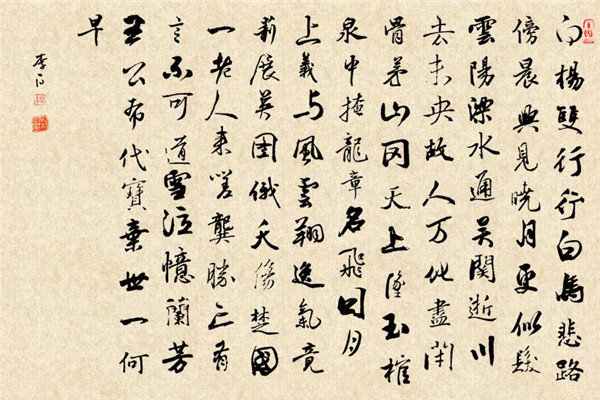 白楊雙行行白馬悲路
傍晨興見曉月更似髮
雲陽溧水通吴關逝川
去未央故人万化盡閉
骨茅山冈天上墜玉棺
泉中掩龍章名飛日月
上義与風雲翔逸氣竟
莫展英图俄夭傷楚國
一老人来嗟龔勝亡有
言不可道雪泣憶蘭芳
王公希代寶棄世一何
早
李白